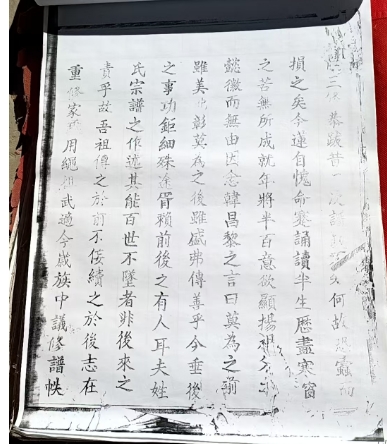 損之矣今蓮自愧命蹇誦讀半生歷盡寒窗
之苦無所成就年將半百意欲顯揚祖
懿徽而無由因念韓昌黎之言曰莫為之前
雖美弗彰莫為之後雖盛弗傳善乎今垂後
之事功鉅細殊途胥賴前後之有人耳夫姓
氏宗譜之作遞其能百世不墜者非後來之
責乎故吾祖傳之於前不佞續之於後志在
重修家 用繩祖武適今歲族中議修譜帙